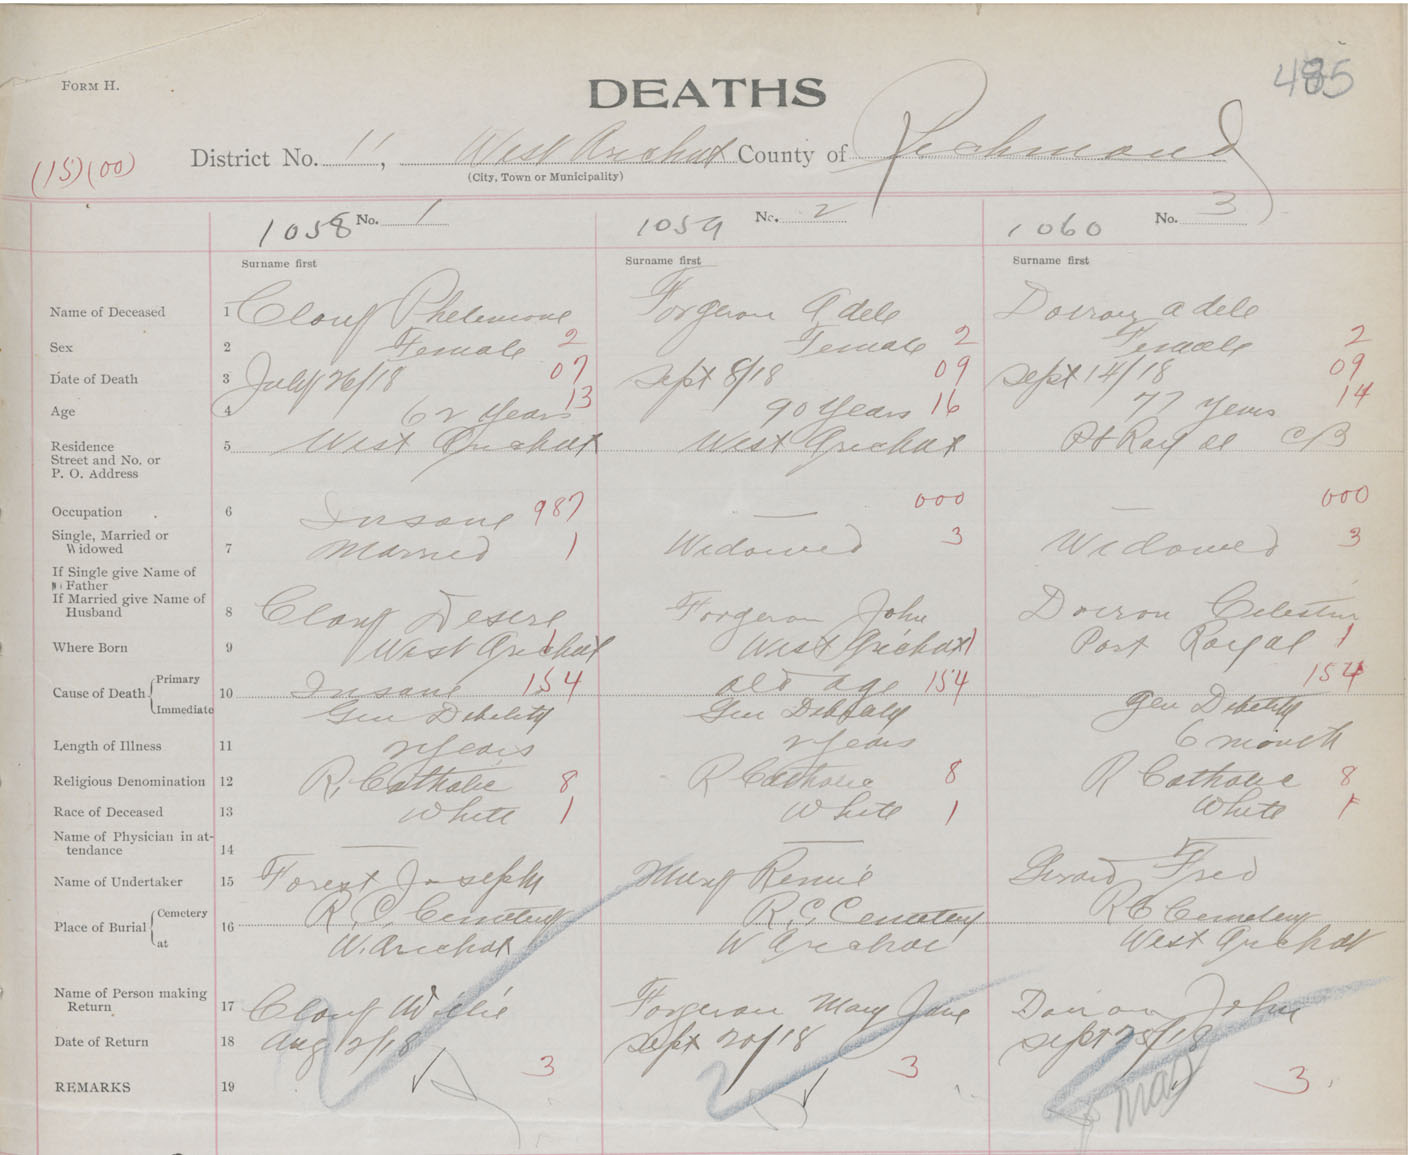 FORM H.
DEATHS
485
(15)(00)
District No. 11, West Arichat County of Richmond
(City, Town or Municipality)
1058 No. 1 1059 No. 2 1060 No. 3
Surname first Surname first Surname first
Name of Deceased 1 Phelemone Forgeron Adele Doiron Adele
Sex 2 Female 2 Female 2 Female 2
Date of Death 3 July 26/18 07 Sept 8/18 09 Sept 14/18 09
Age 4 62 years 13 90 years 16 77 years 14
Residence 5 West Arichat West Arichat Pt Royal CB
Street and No. or
P. O. Address
Occupation 6 Insane 987 — 000 — 000
Single, Married or
Widowed 7 Married 1 Widowed 3 Widowed 3
If Single give Name of
Father
If Married give Name of
Husband 8 Desere Forgeron John Doiron Celestin
Where Born 9 West Arichat 1 West Arichat 1 Port Royal 1
Cause of Death Primary 10 Insane 154 Old age 154 154
Immediate Gen Debelity Gen Gen Debelity
Length of Illness 11 2 years 2 years 6 month
Religious Denomination 12 R. Catholic 8 R Catholic 8 R Catholic 8
Race of Deceased 13 White 1 White 1 White 1
Name of Physician in at-
tendance 14 — — —
Name of Undertaker 15 Forest Joseph Fred
Place of Burial Cemetery 16 R. C. Cemetery R. C. Cemetery R C Cemetery
at W. Arichat W Arichat West Arichat
Name of Person making
Return 17 Willie Forgeron Mary Jane Doiron John
Date of Return 18 Aug 12/18 Sept 20/18 Sept 28/18
REMARKS 19 3 3 3